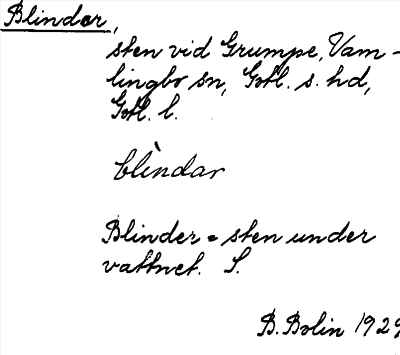 Blinder,
sten vid Grumpe, Vam-
lingbo sn, Gotl. s. hd,
Gotl. l.
blìndar
Blinder = sten under
vattnet. S.
B. Bolin 1929